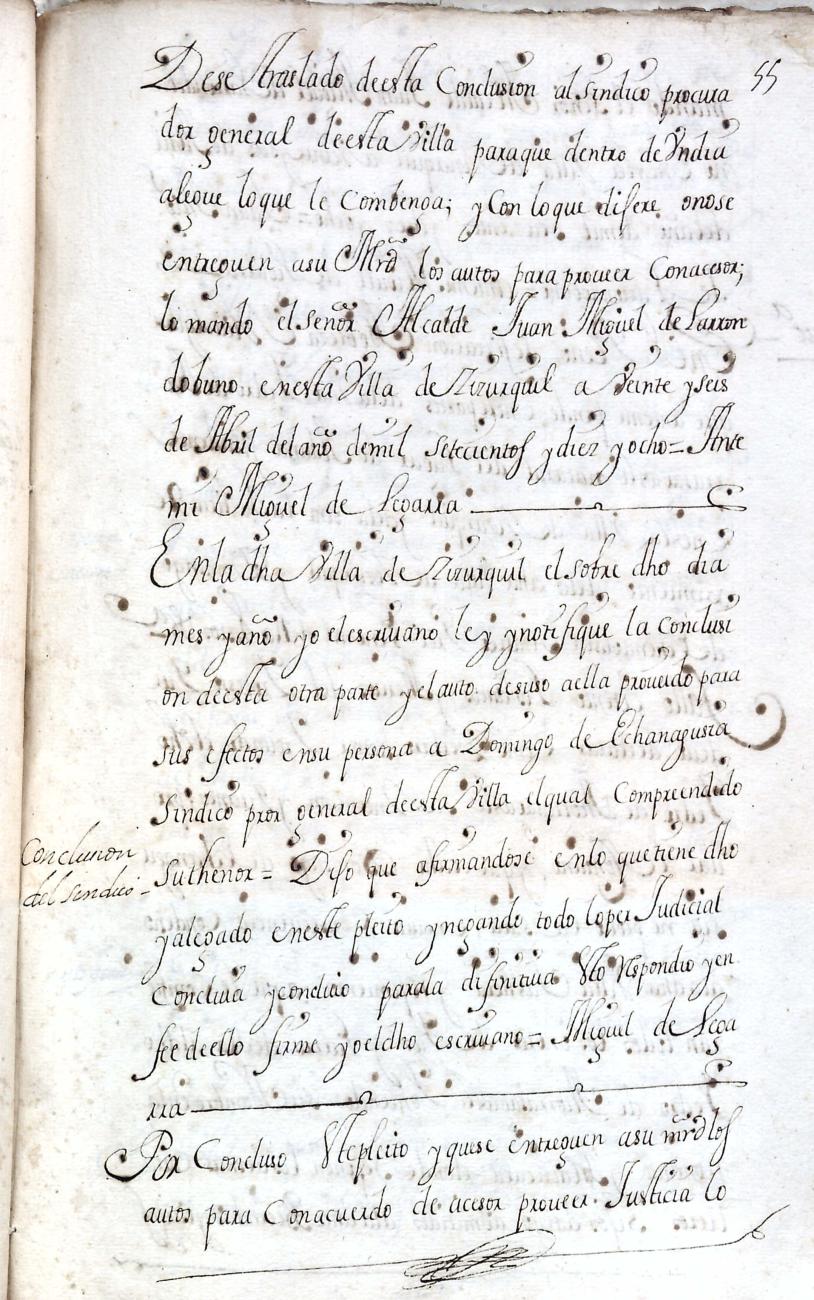 55
Dese traslado deesta Conclusion al sindico procura
dor general deesta Villa paraque dentro de Vndia
alegue loque le Combenga; y Con loque disere onose
entreguen asu Mrd los autos para proueer Conacesor;
lo mando el señor Alcalde Juan Miguel de Larron
dobuno enesta Villa de Zizurquil a Veinte y seis
de Abril del año demil setecientos y diez y ocho = Ante
mi Miguel de Legarra
Enla dha Villa de Zizurquil el sobre dho dia
mes y año yo elescriuano ley y notifique la Conclusi
on deesta otra parte y elauto desuso aella proueido para
sus efectos ensu persona a Domingo de Echanagusia
Sindico pror general deesta Villa elqual Compreendido
Conclusion
del sindico
suthenor = Dijo que afirmandose enlo quetiene dho
y alegado eneste pleito y negando todo loper Judicial
Concluia y concluio parala difinitiua Sto Respondio y en
fee deello firme yo eldho escriuano = Miguel de Lega
rra
Por Concluso Stepleito y quese entreguen asu mrd los
autos para Conacuerdo de acesor proueer Justicia lo